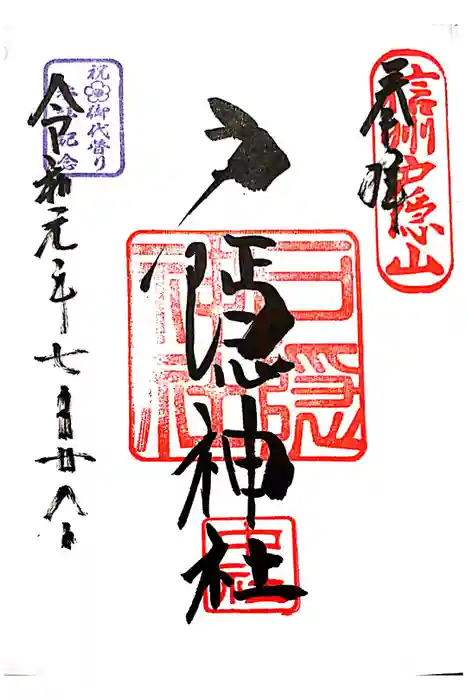 奉拝
信州戸隠山
戸隠神社
戸隠神社
中社
令和元年七月廿八日
祝 御代替り
記念